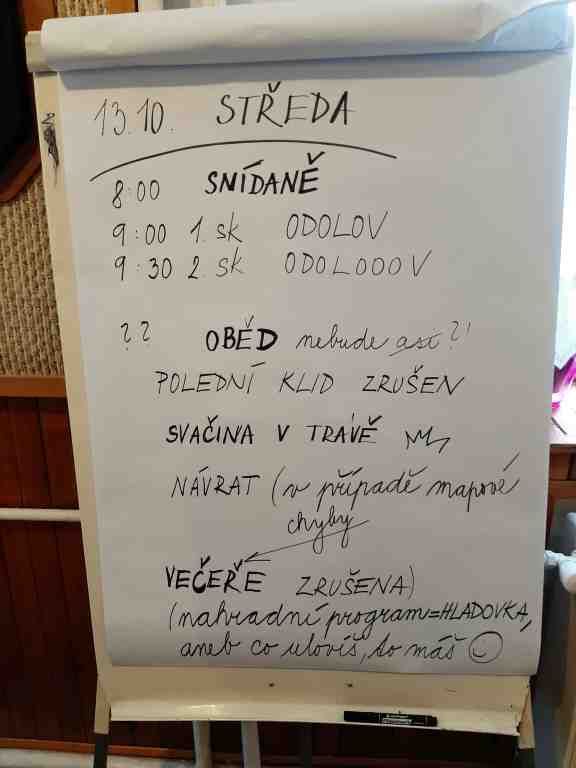 13.10. STŘEDA
8:00 SNÍDANĚ
9:00 1. sk ODOLOV
9:30 2. sk ODOLOOOV
?? OBĚD nebude asi?!
POLEDNÍ KLID ZRUŠEN
SVAČINA V TRÁVĚ
NÁVRAT (v případě mapové
chyby
VEČEŘE ZRUŠENA)
(nahradní program=HLADOVKA,
aneb co ulovíš, to máš